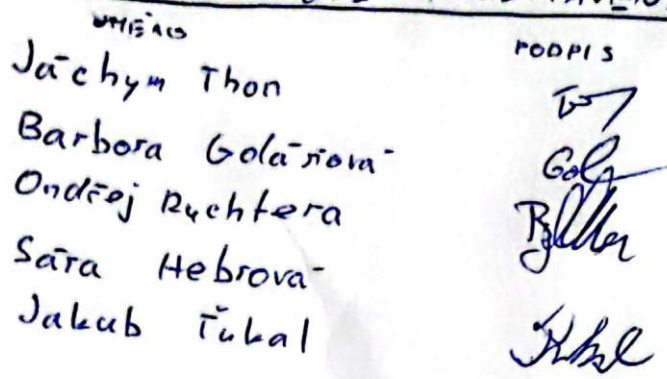 PODPIS
Jáchym Thon
Barbora Golářová
Ondřej Rychtera
Sára Hebrová
Jakub Ťukal